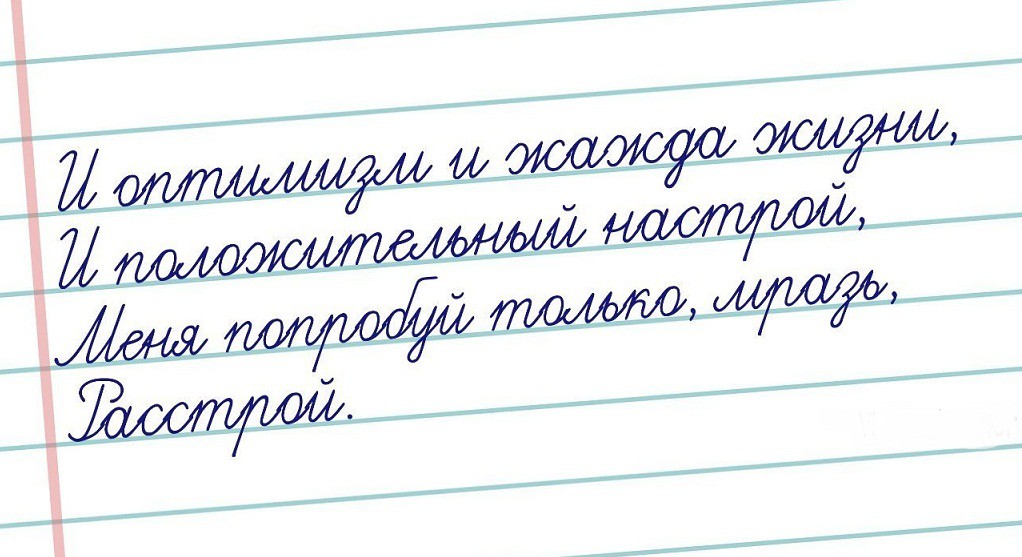 И оптимизм и жажда жизни,
И положительный настрой,
Меня попробуй только, мразь,
Расстрой.